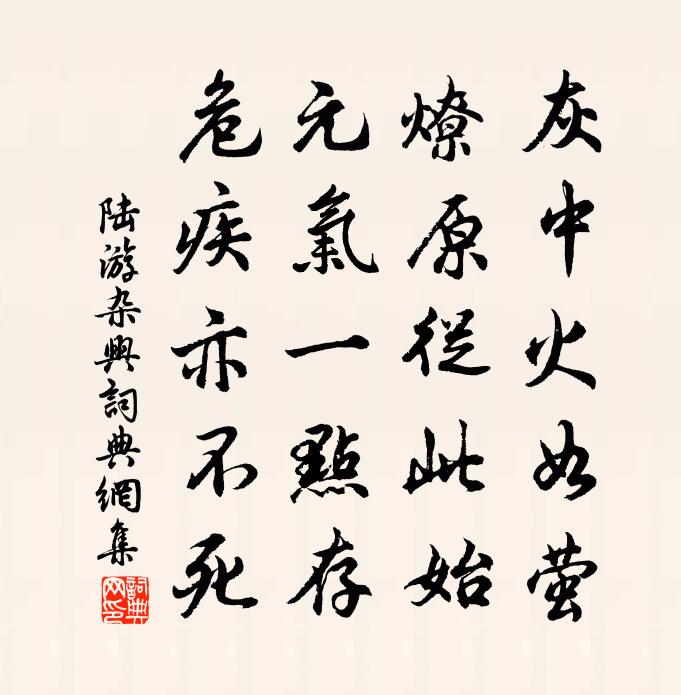 灰中火如萤
燎原從此始
元氣一點存
危疾亦不死
陆游杂興詞典網集
詞典网印